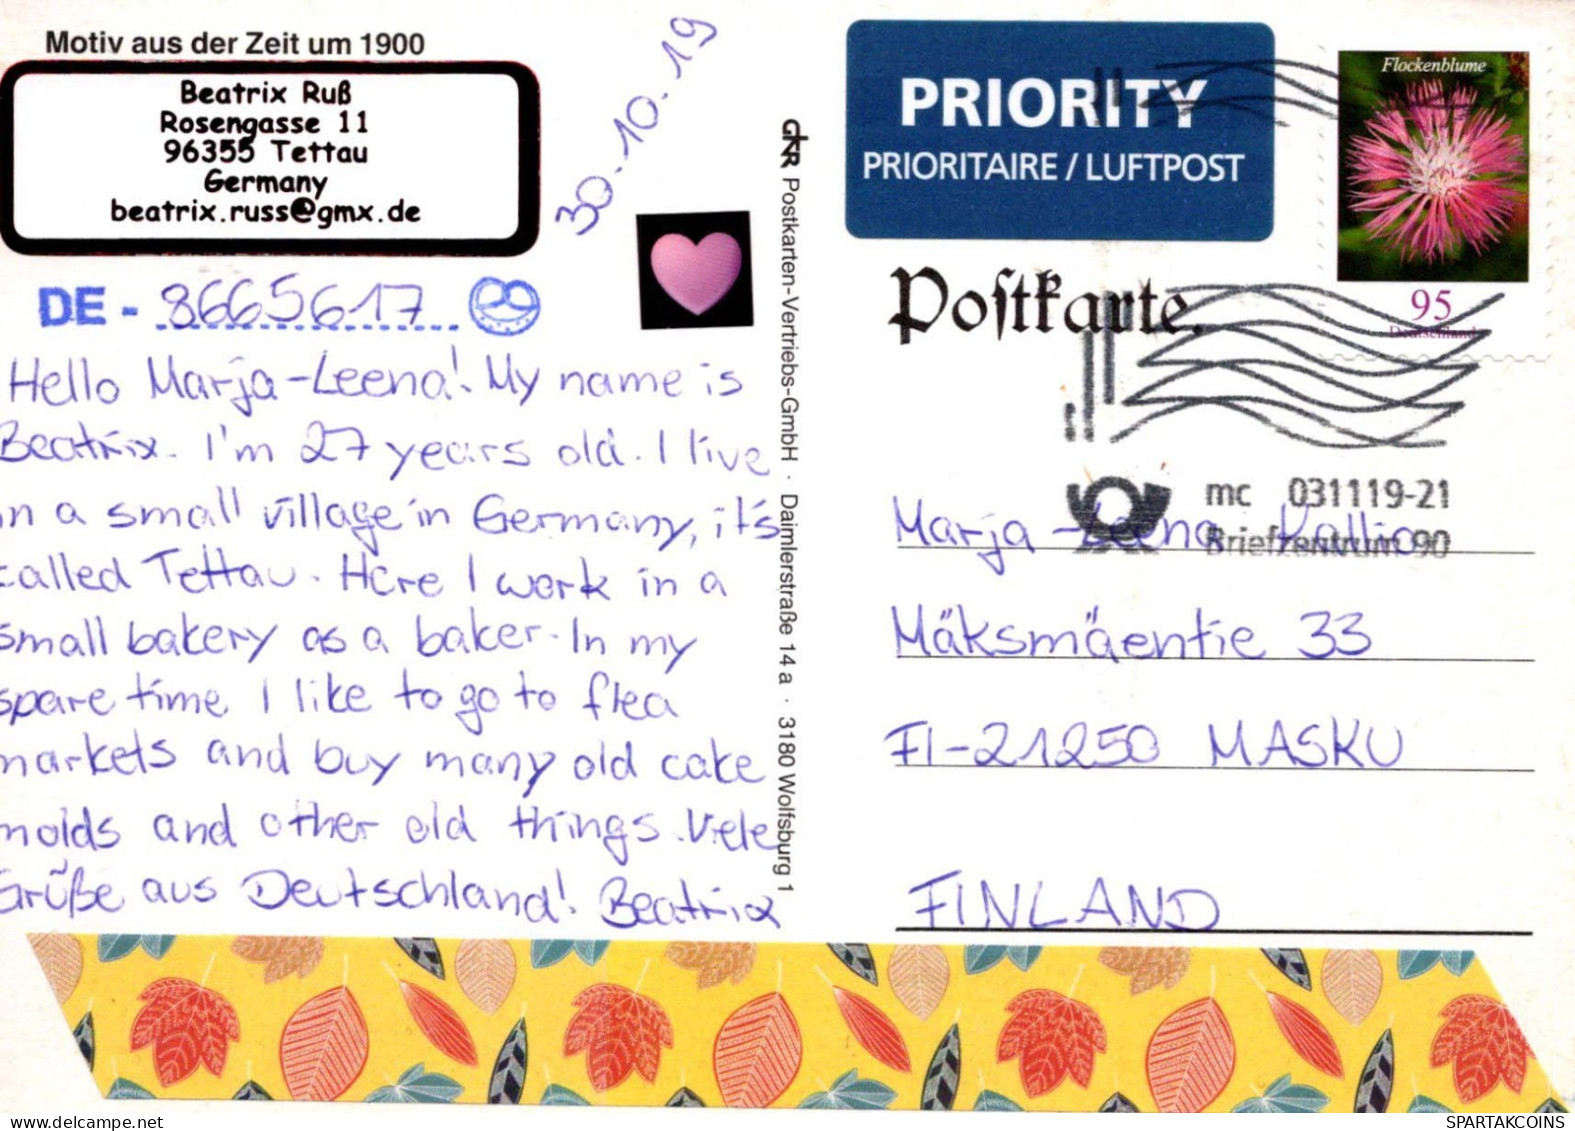 Motiv aus der Zeit um 1900
Beatrix Ruß
Rosengasse 11
96355 Tettau
Germany
beatrix.russ@gmx.de
30.10.19
DE - 8665617
Hello Marja-Leena! My name is
Beatrix. I'm 27 years old. I live
in a small village in Germany, it's
called Tettau. Here I work in a
small bakery as a baker. In my
spare time I like to go to flea
markets and buy many old cake
molds and other old things. Viele
Grüße aus Deutschland! Beatrix
Postkarten-Vertriebs-GmbH · Daimlerstraße 14 a · 3180 Wolfsburg 1
PRIORITY
PRIORITAIRE / LUFTPOST
Flockenblume
95
Deutschland
Postkarte.
mc 031119-21
Briefzentrum 90
Marja-Leena Kallio
Mäksmäentie 33
FI-21250 MASKU
FINLAND
hippostcard.com
SPARTAKCOINS